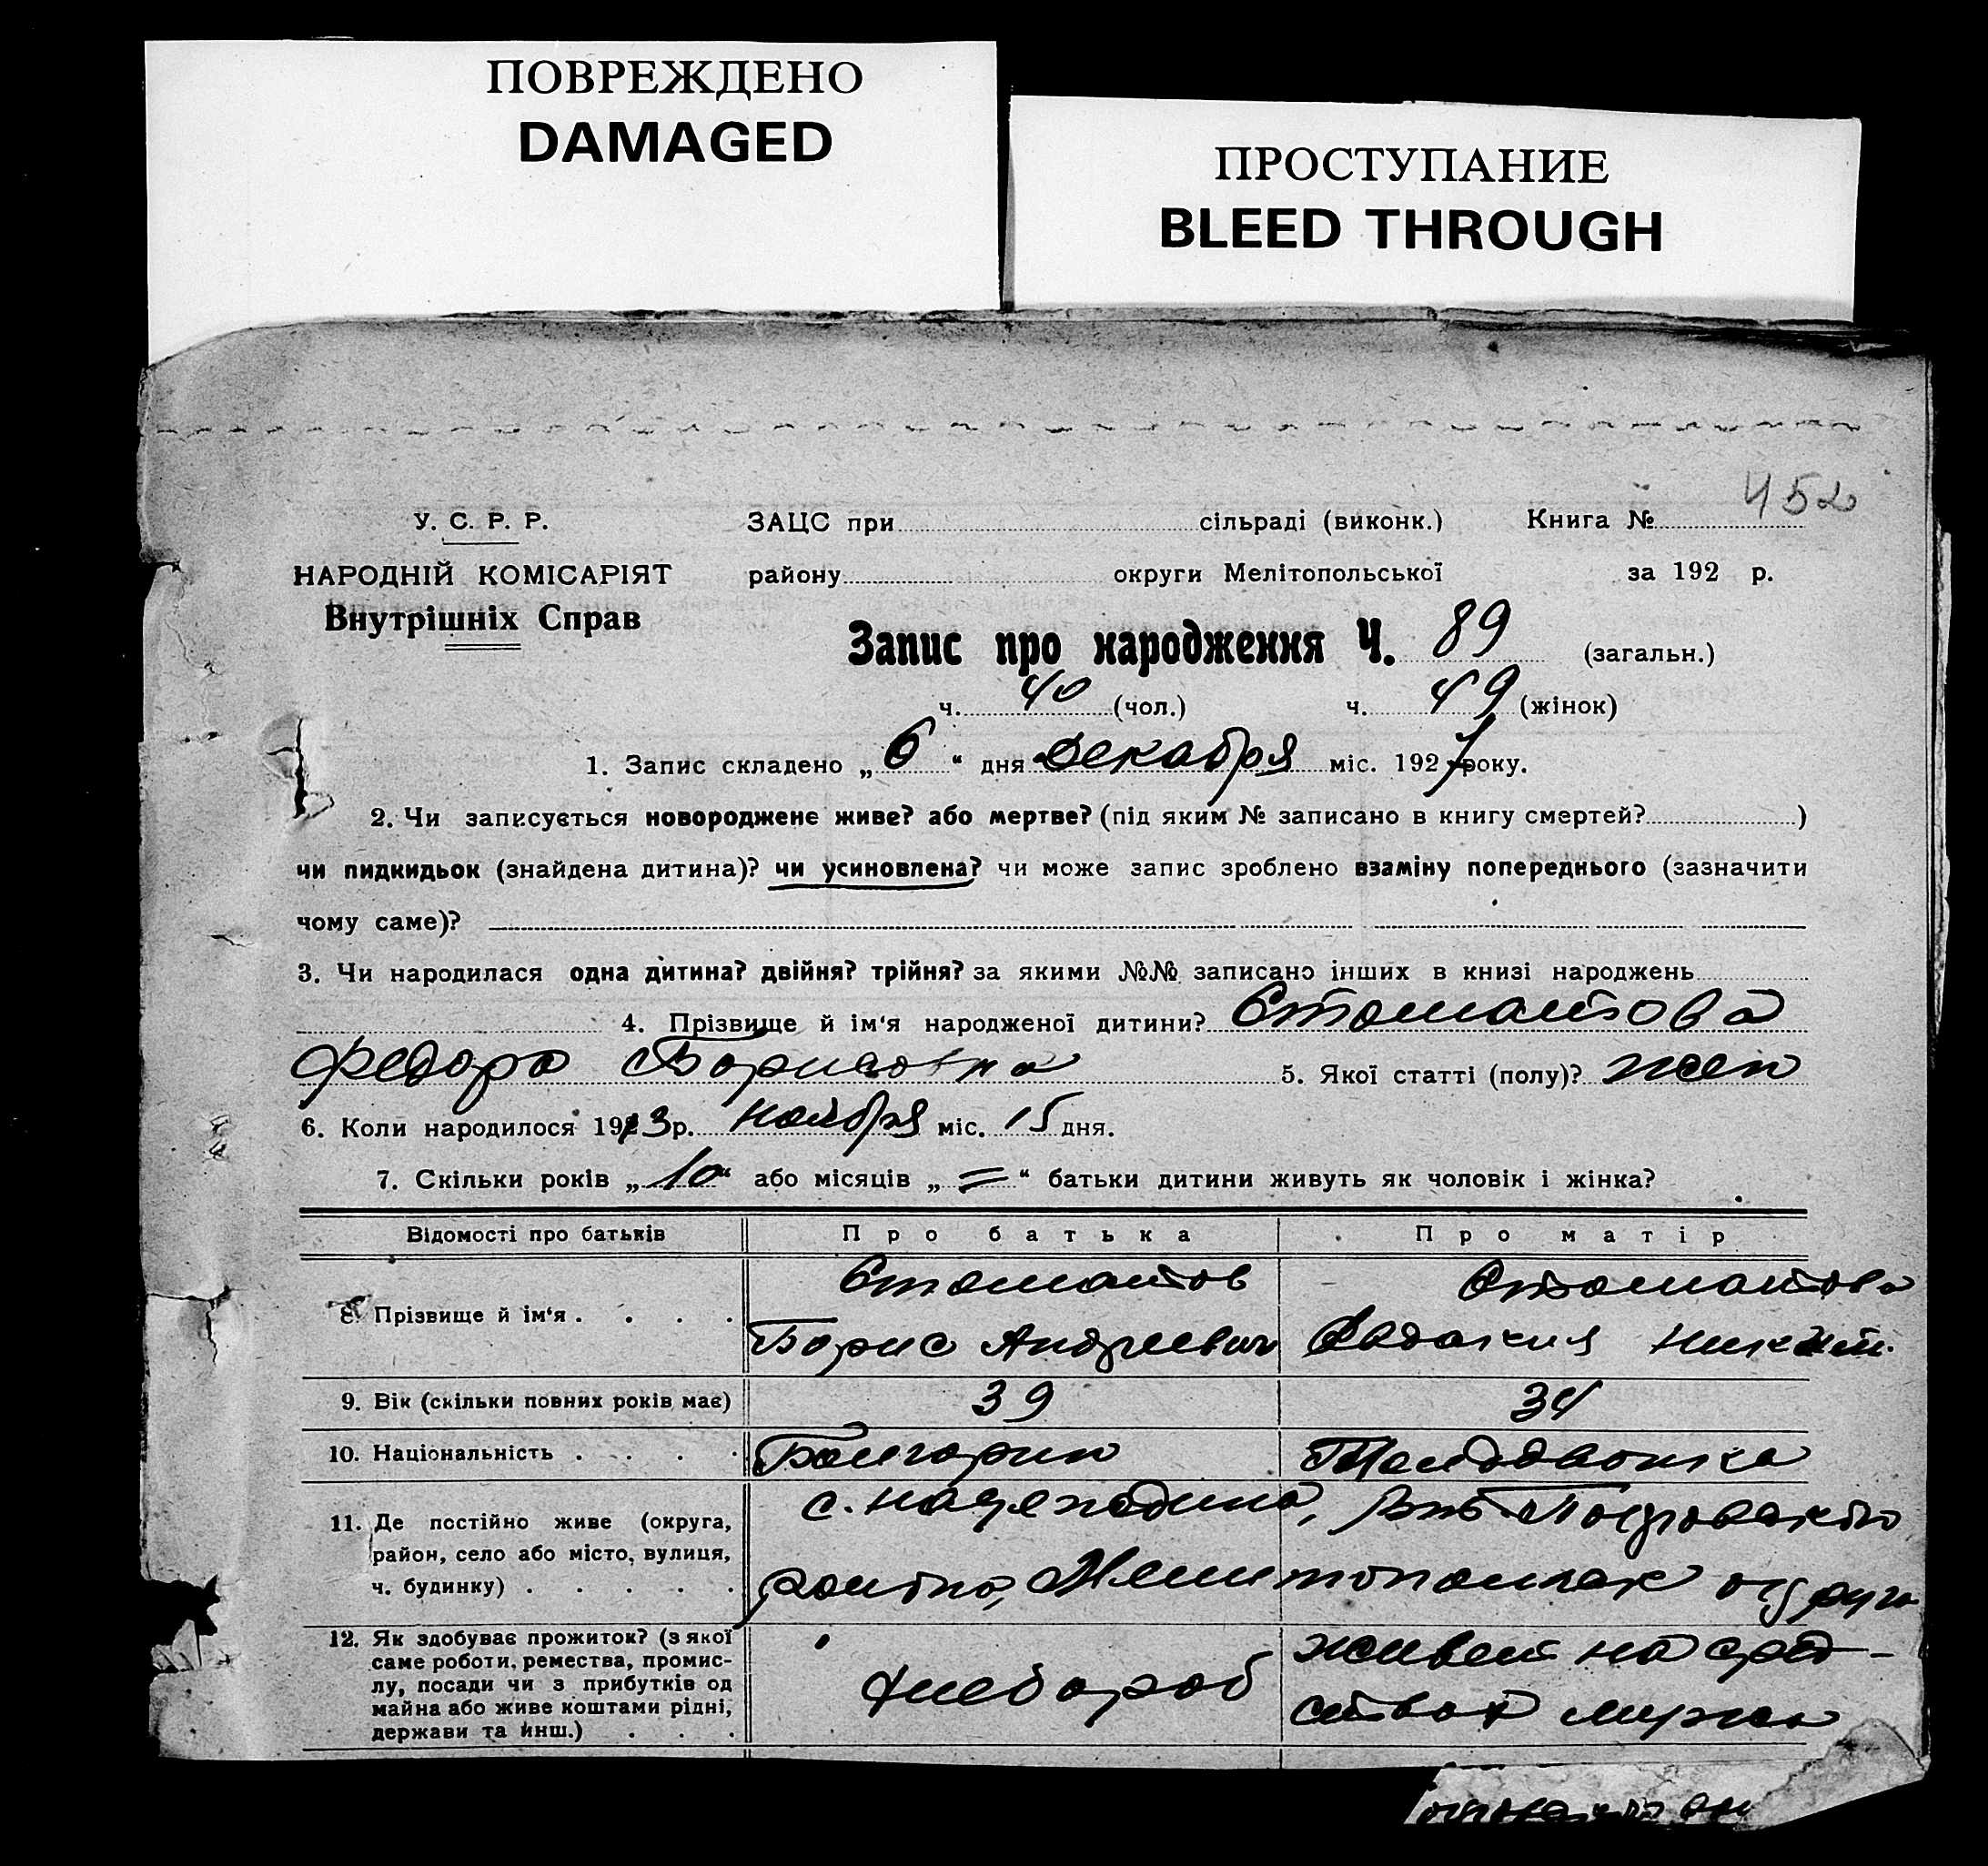 ПОВРЕЖДЕНО
DAMAGED
ПРОСТУПАНИЕ
BLEED THROUGH
452
У. С. Р. Р.
НАРОДНІЙ КОМІСАРІЯТ
Внутрішніх Справ
ЗАЦС при сільраді (виконк.) Книга №
району округи Мелітопольської за 192 р.
Запис про народження Ч. 89 (загальн.)
ч. 40 (чол.) ч. 49 (жінок)
1. Запис складено „ 6 “ дня Декабря міс. 1927 року.
2. Чи записується новороджене живе? або мертве? (під яким № записано в книгу смертей? )
чи пидкидьок (знайдена дитина)? чи усиновлена? чи може запис зроблено взаміну попереднього (зазначити
чому саме)?
3. Чи народилася одна дитина? двійня? трійня? за якими №№ записано інших в книзі народжень
4. Прізвище й ім‘я народженої дитини? Стоматова
Федора Борисовна 5. Якої статті (полу)? жен
6. Коли народилося 1913 р. ноября міс. 15 дня.
7. Скільки років „ 10 “ або місяців „ = “ батьки дитини живуть як чоловік і жінка?
Відомості про батьків Про батька Про матір
8. Прізвище й ім‘я . . . . Стоматов Стоматова
Борис Андреевич Евдокия Никит.
9. Вік (скільки повних років має) 39 34
10. Національність . . . . Болгарин
11. Де постійно живе (округа, район, село або місто, вулиця, ч. будинку) . . . . .
с. Надеждино,
района, Мелитопольск округи
12. Як здобуває прожиток? (з якої саме роботи, ремества, промислу, посади чи з прибутків од майна або живе коштами рідні, держави та инш.) . . .
Хлебороб
живет на сред-
ствах мужа